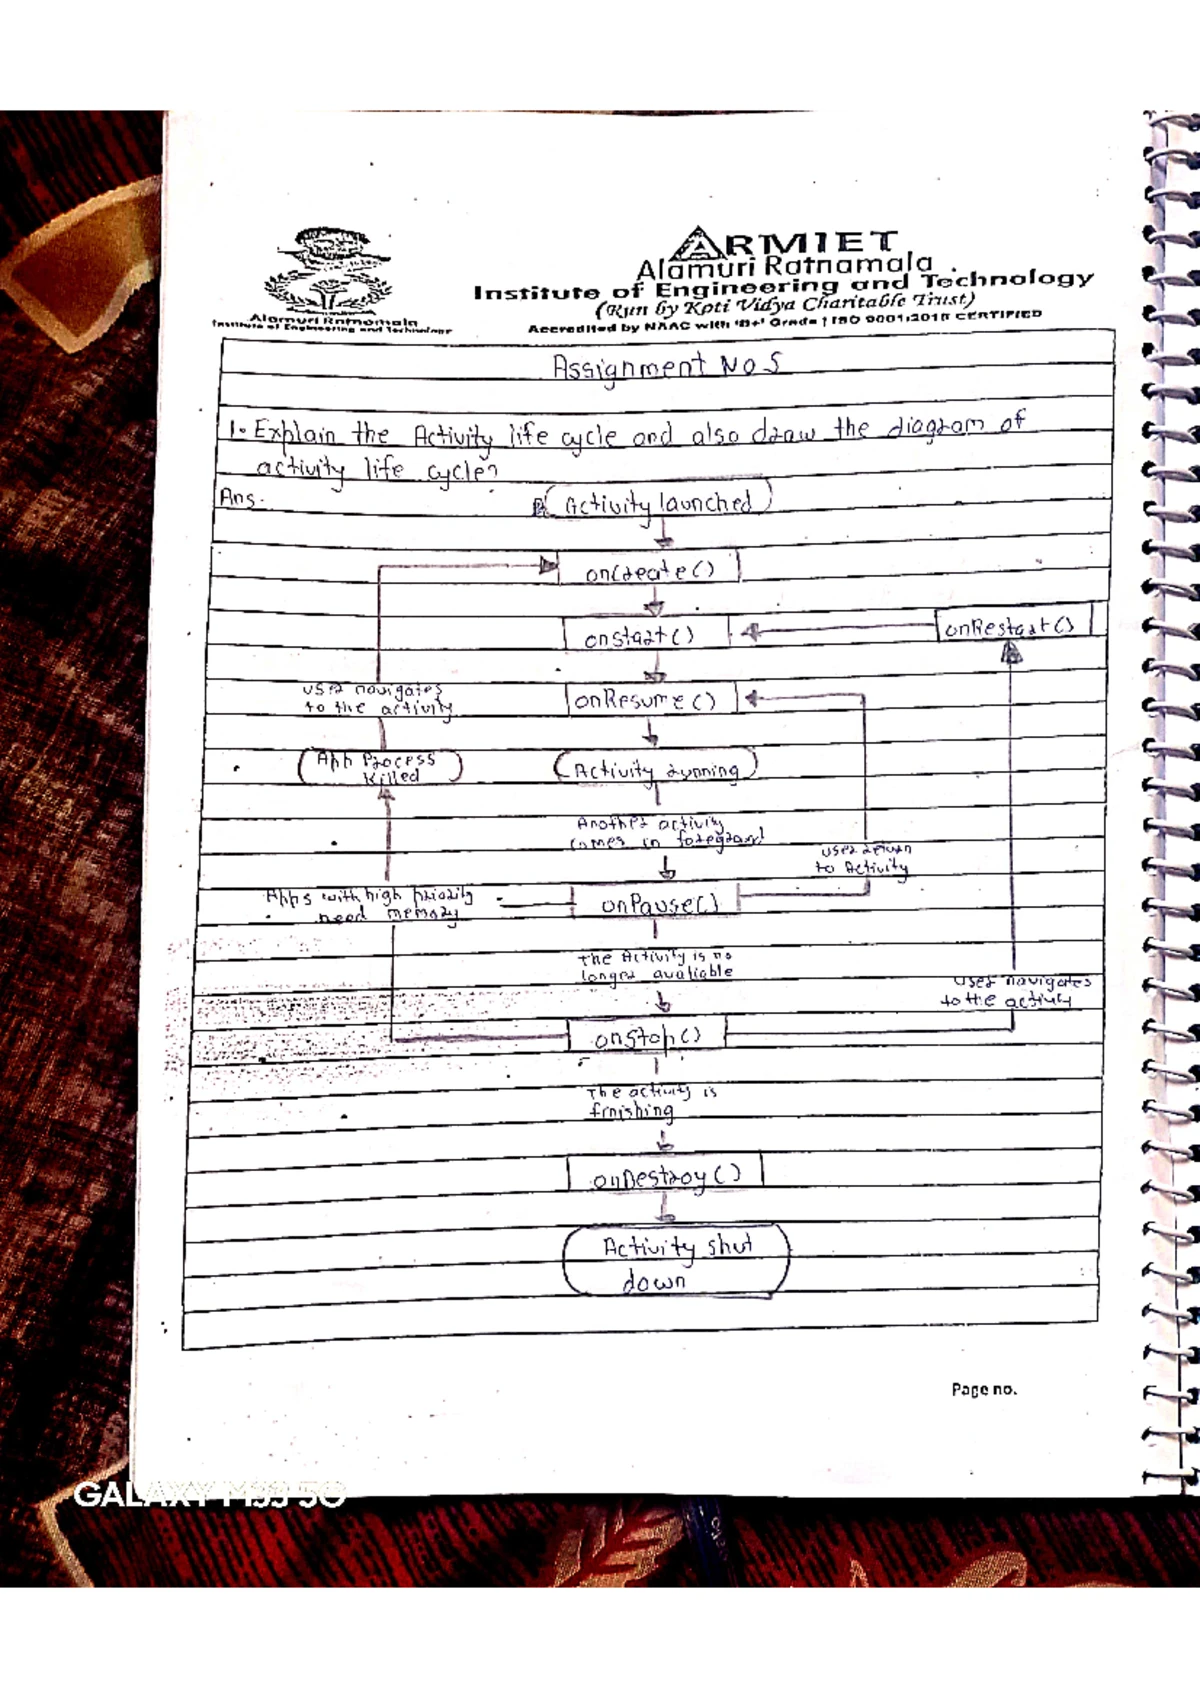 ARMIET
Alamuri Ratnamala
Institute of Engineering and Technology
(Run by Koti Vidya Charitable Trust)
Accredited by NAAC with 'B+' Grade | ISO 9001:2015 CERTIFIED
Alamuri Ratnamala
Institute of Engineering and Technology
Assignment No 5
1. Explain the Activity life cycle and also draw the diagram of
activity life cycle?
Ans.
Activity launched
onCreate()
onstart()
onRestart()
onResume()
user navigates
to the activity
App Process
killed
Activity running
Another activity
comes in foreground
user return
to Activity
Apps with high priority
need memory
onPause()
The Activity is no
longer avaliable
user navigates
to the activity
onStop()
The activity is
finishing
onDestroy()
Activity shut
down
Page no.
GALAXY M33 5G